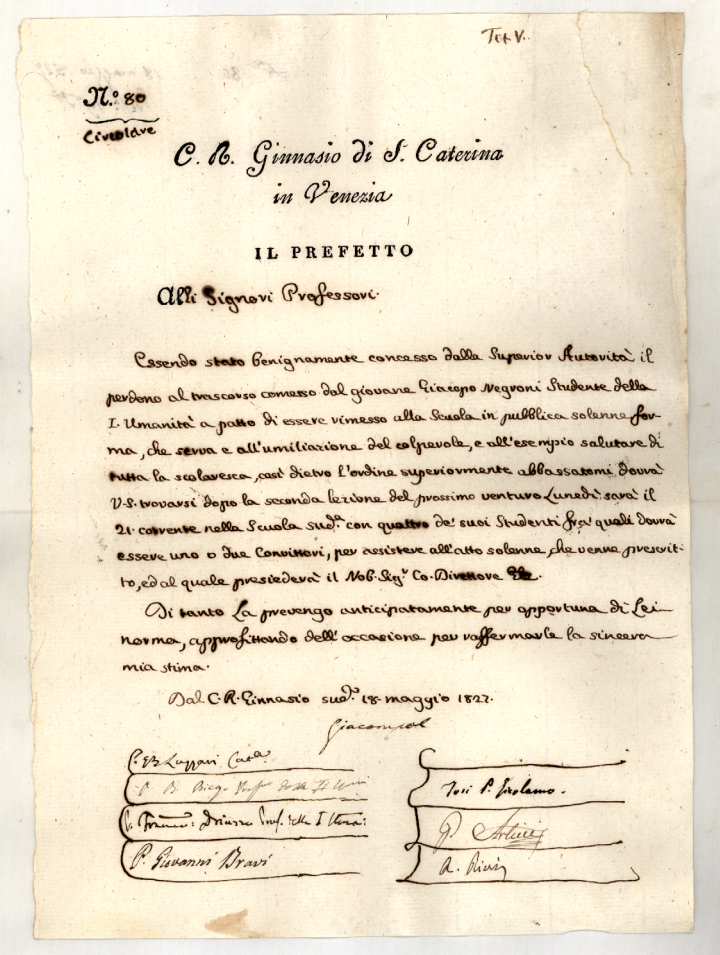 Tit. V.
N.º 80
Circolare
C. R. Ginnasio di S. Caterina
in Venezia
IL PREFETTO
Alli Signori Professori.
Essendo stato benignamente concesso dalla Superior Autorità il
perdono al trascorso comesso dal giovane Giacopo Negroni Studente della
I. Umanità a patto di essere rimesso alla Scuola in pubblica solenne for-
ma, che serva e all'umiliazione del colpevole, e all'esempio salutare di
tutta la scolaresca, così dietro l'ordine superiormente abbassatomi dovrà
V. S. trovarsi dopo la seconda lezione del prossimo venturo Lunedì sarà il
21. corrente nella Scuola sud.ª con quattro de' suoi Studenti fra' quali dovrà
essere uno o due Convittori, per assistere all'atto solenne, che venne prescrit-
to, ed al quale presiederà il Nob. Sig.r Co. Direttore
Di tanto La prevengo anticipatamente per opportuna di Lei
norma, approfittando dell'occasione per raffermarle la sincera
mia stima.
Dal C. R. Ginnasio sud.º 18. maggio 1827.
P. Giovanni Bravi
Tosi P. Girolamo.